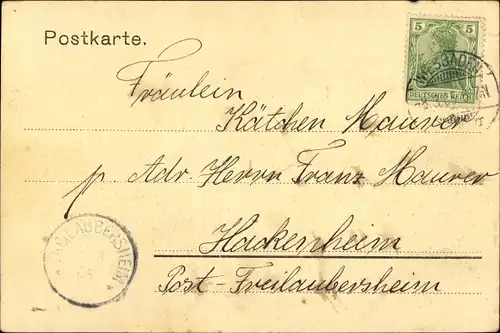 Postkarte.
5 5
DEUTSCHES REICH
WIESBADEN
Fräulein
Kätchen Maurer
p. Adr. Herrn Franz Maurer
Hackenheim
Post-Freilaubersheim